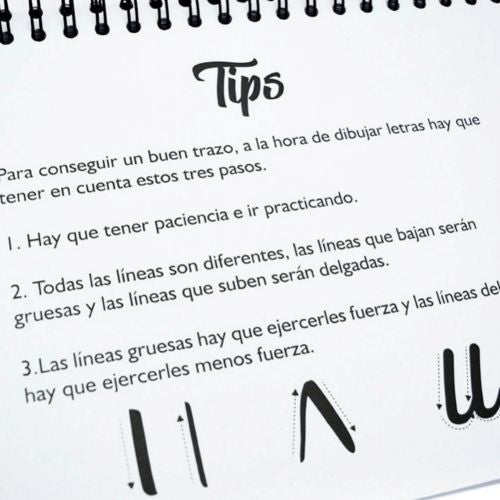 Tips
Para conseguir un buen trazo, a la hora de dibujar letras hay que
tener en cuenta estos tres pasos.
1. Hay que tener paciencia e ir practicando.
2. Todas las líneas son diferentes, las líneas que bajan serán
gruesas y las líneas que suben serán delgadas.
3.Las líneas gruesas hay que ejercerles fuerza y las líneas del
hay que ejercerles menos fuerza.